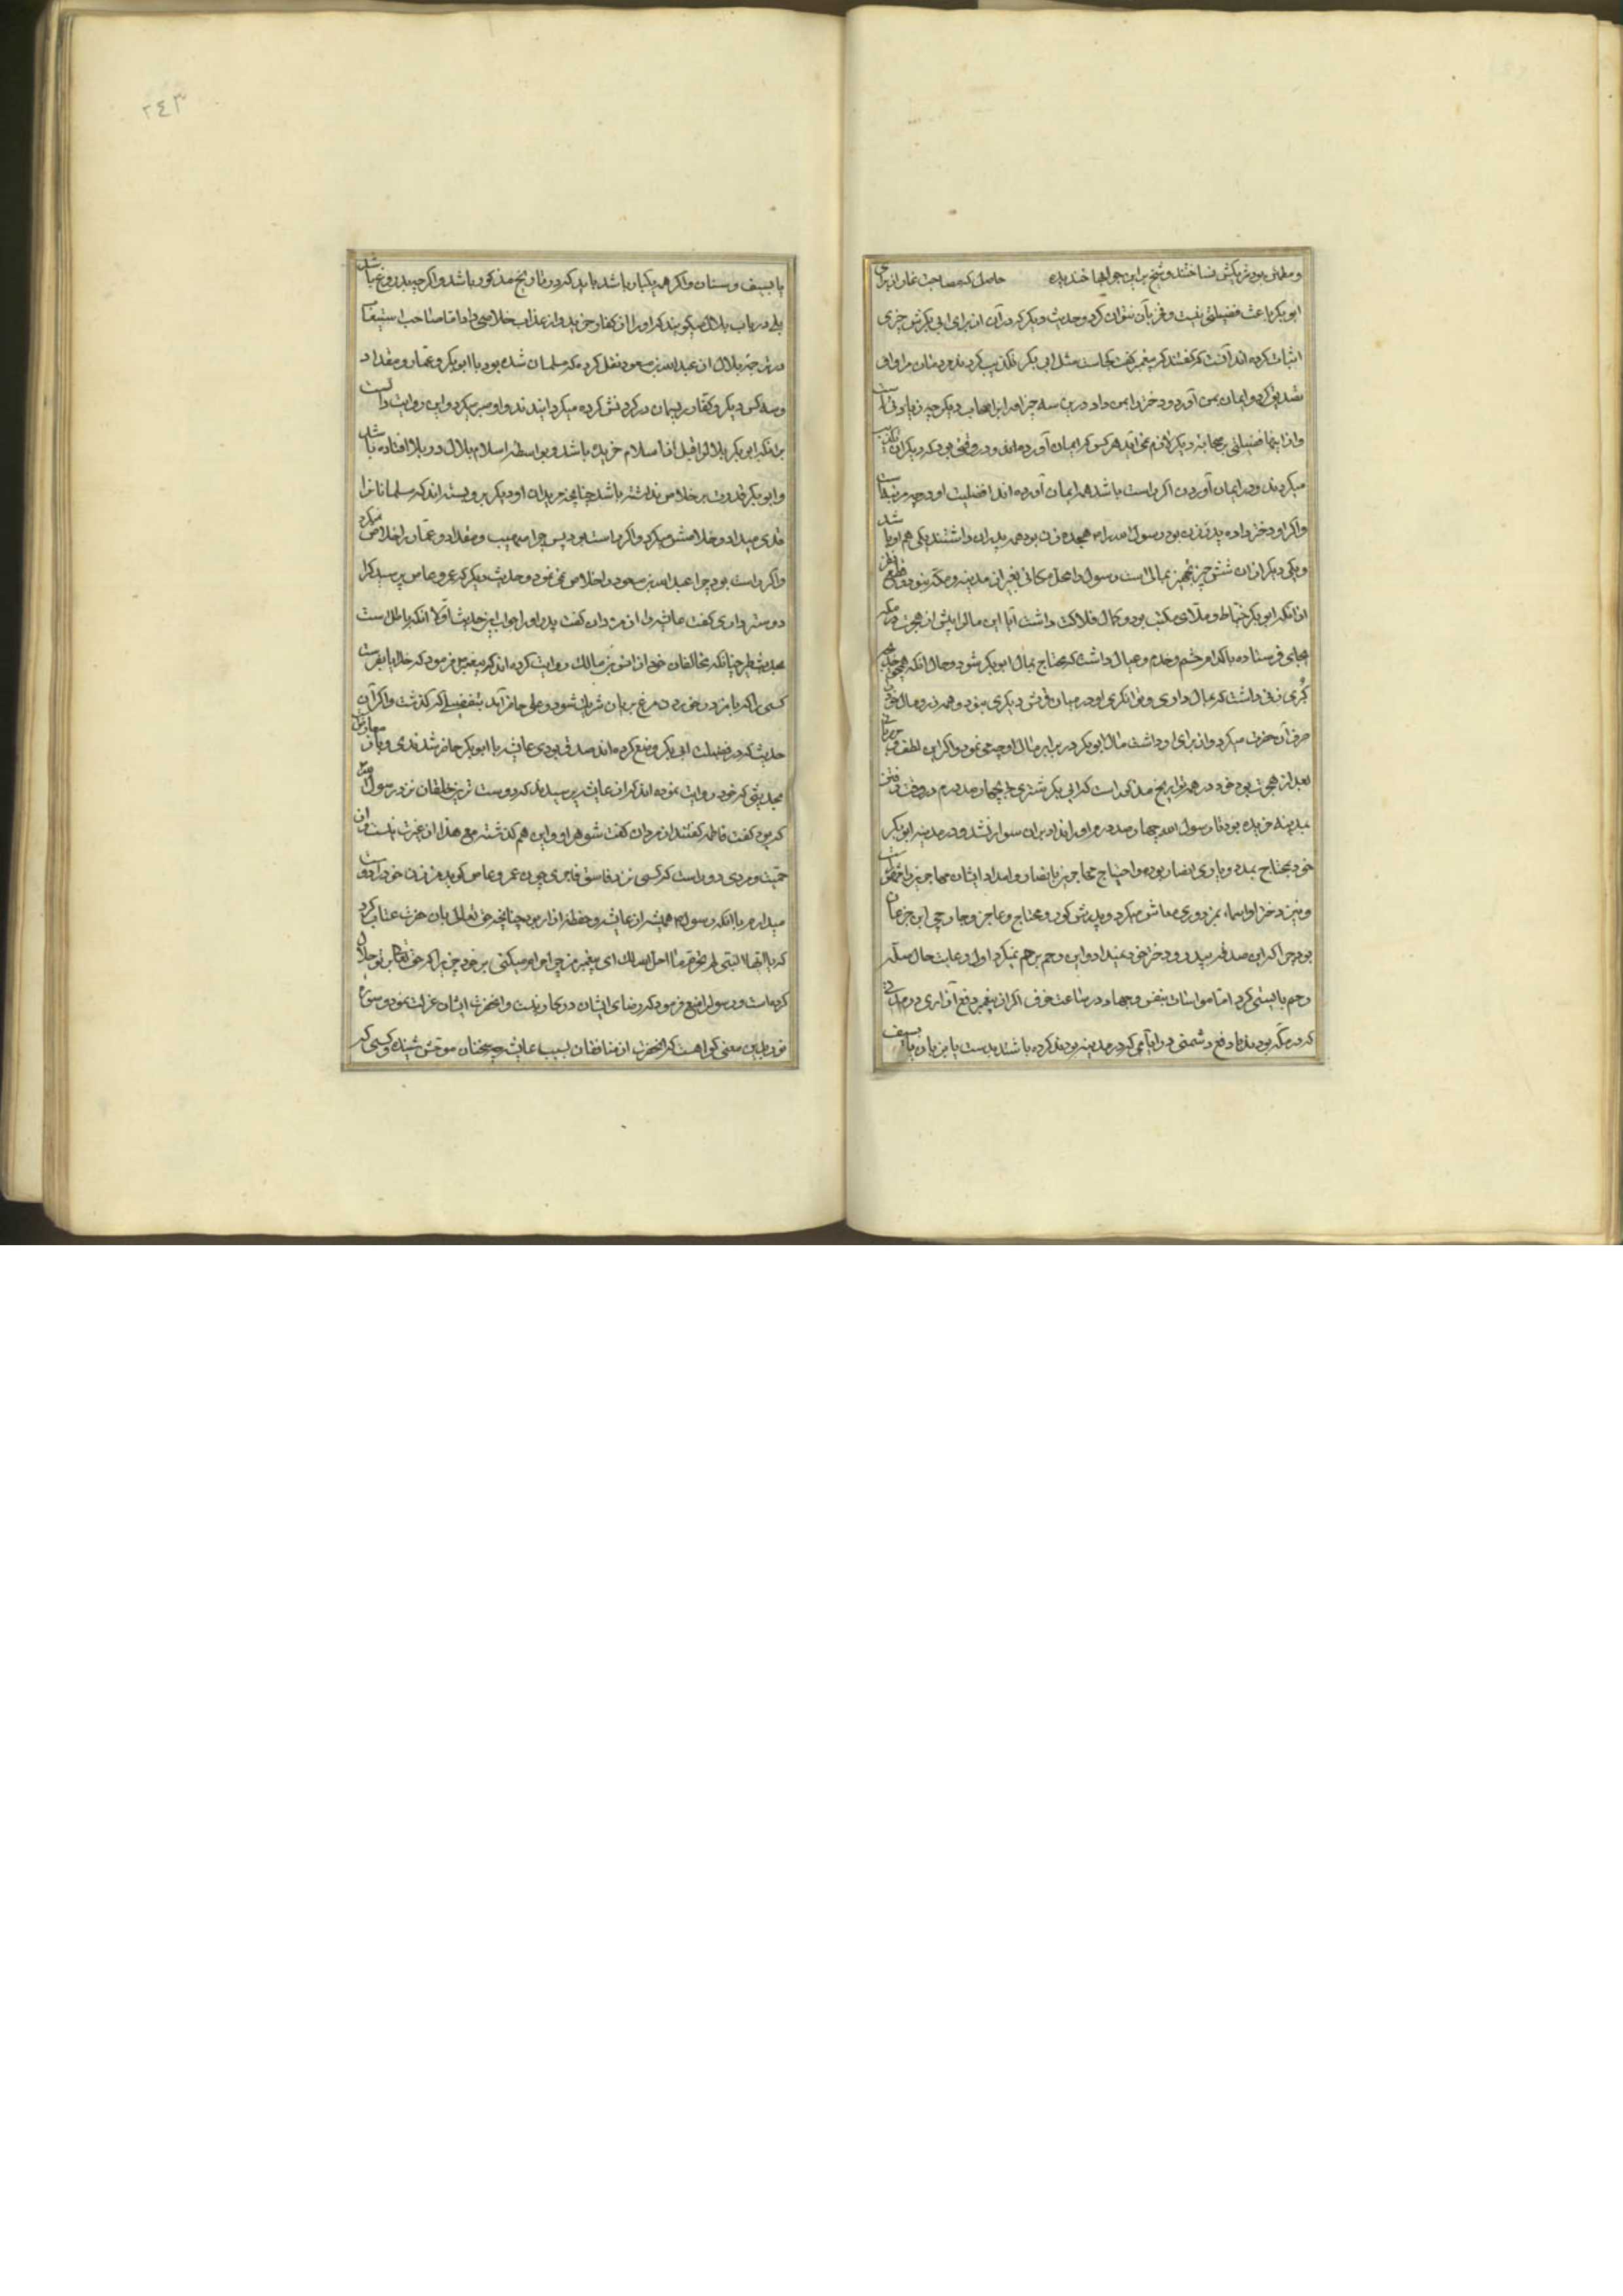 و مطمئن بود شریکش نساختند و شیخ بر این جوابها خندیده حاصل که مصاحبت غار از برای
ابو بکر باعث فضیلتی نیست و فخر بآن نتوان کرد و حدیث دیگر که در آن از برای ابی بکر شش چیزی
اثبات کرده اند آنست که گفتند که پیغمبر گفت کجاست مثل ابی بکر تکذیب کردند مردمان مرا و او
تصدیق کرد و ایمان بمن آورد و دختر بمن داد در این سه چیز او را بر اصحاب دیگر چه زیادتی است
و از اینها فضیلتی بر صحابه دیگر لازم نمی آید هر کس که ایمان آورده اند در وقتی بود که دیگران تکذیب
میکردند و در ایمان آوردن اگر راست باشد همه ایمان آورده اند افضلیت او در چه مرتبه است
و اگر او دختر داده پدر زن بود رسول را هجده زن بود همه پدران داشتند یکی هم او باشد
و یکی دیگر از آن شش چیز تجهیز بمال است رسول را محل مکانی بغیر از مدینه و مکه نبود و قطع نظر
از آنکه ابو بکر خیاط و ملای مکتب بود و کمال فلاکت داشت آیا این مال را پیش از هجرت در مکه
بجای فرستاده یا کدام حشم و خدم و عیال داشت که محتاج بمال ابو بکر شود و حال آنکه خدیجه
کبری زنی داشت که بمال داری و توانگری او در میان قریش دیگری نبود و همه زر و مال خود
صرف آن حضرت میکرد و از برای او داشت مال ابو بکر در برابر مال او چه می نمود و اگر این لطف و مهربانی
بعد از هجرت بود خود در همه تواریخ مذکور است که ابی بکر شتری را بچهارصد درم در وقت رفتن
بمدینه خریده بود تا رسول الله چهارصد درم او را نداد بر آن سوار نشد و در مدینه ابو بکر
خود محتاج بمدد و یاری انصار بوده و احتیاج مهاجرین بانصار و امداد ایشان مهاجرین را مشهور است
و نیز دختر او اسماء بمزدوری معاش میکرد و پدرش کور و محتاج و عاجز و جارچی ابن جزعان
بود چرا که این صدقه بپدر و دختر خود نمیداد و این رحم بر هم نمیکرد اول رعایت حال صله
رحم بایستی کرد اما مواسات بنفس و جهاد در ساعت خوف اگر از پیغمبر دفع آزاری در مدتی
که در مکه بودند یا دفع دشمنی در ایامی که در مدینه بودند کرده باشند بدست یا بزبان یا بسیف
یا بسیف و سنان و اگر همه یکبار باشد باید که در تاریخ مذکور باشد و اگر چه بدروغ باشد
بلی در باب بلال میگویند که او را از کفار خرید و از عذاب خلاصی داد اما صاحب استیعاب
در ترجمه بلال از عبدالله بن مسعود نقل کرده که مسلمان شده بود با ابو بکر و عمار و مقداد
و سه کس دیگر و کفار ریسمان در گردنش کرده میگردانیدند و او صبر میکرد و این روایت دال است
بر آنکه ابو بکر بلال را قبل از اسلام خریده باشد و بواسطه اسلام بلال در بلا افتاده باشد
و ابو بکر قدرت بر خلاص نداشته باشد چنانچه مریدان او دیگر بر و بسته اند که مسلمانان را
فدی میداد و خلاصش میکرد و اگر راست بود پس چرا صهیب و مقداد و عمار را خلاص نمیکرد
و اگر راست بود چرا عبدالله بن مسعود را خلاص نمی نمود و حدیث دیگر که عمرو عاص پرسید که را
دوستر داری گفت عایشه را از مردان گفت پدر او را جواب این حدیث اولا آنکه باطل است
بحدیث طیر چنانکه مخالفان خود از انس بن مالک روایت کرده اند که پیغمبر فرمود که خدایا بفرست
کسی را که با من در خوردن مرغ بریان شریک شود و علی حاضر آمد بتفصیلی که گذشت و اگر آن
حدیث که در فضیلت ابی بکر وضع کرده اند صدق بودی عایشه با ابو بکر حاضر شدندی و باز معارض
بحدیثی که خود روایت نموده اند که از عایشه پرسیدند که دوست ترین خلقان نزد رسول الله
که بود گفت فاطمه گفتند از مردان گفت شوهر او و این هم گذشته مع هذا از غیرت نیست و از
حمیت و مردی دور است که کسی نزد فاسق فاجری چون عمرو عاص گوید من زن خود را دوست
میدارم با آنکه رسول همیشه از عایشه و حفظه آزار بود چنانچه حق تعالی بآن حضرت عتاب کرد
که یا ایها النبی لم تحرم ما احل الله لک ای پیغمبر من چرا حرام میکنی بر خود چیزی را که حق تعالی بر تو حلال
کرده است و رسول را منع فرمود که رضای ایشان در کار نیست و آنحضرت از ایشان عزلت نمود و سوره
نور بدین معنی گواهست که آنحضرت از منافقان بسبب عایشه چه سخنان موحش شنیده و کسی که
٢٤٣